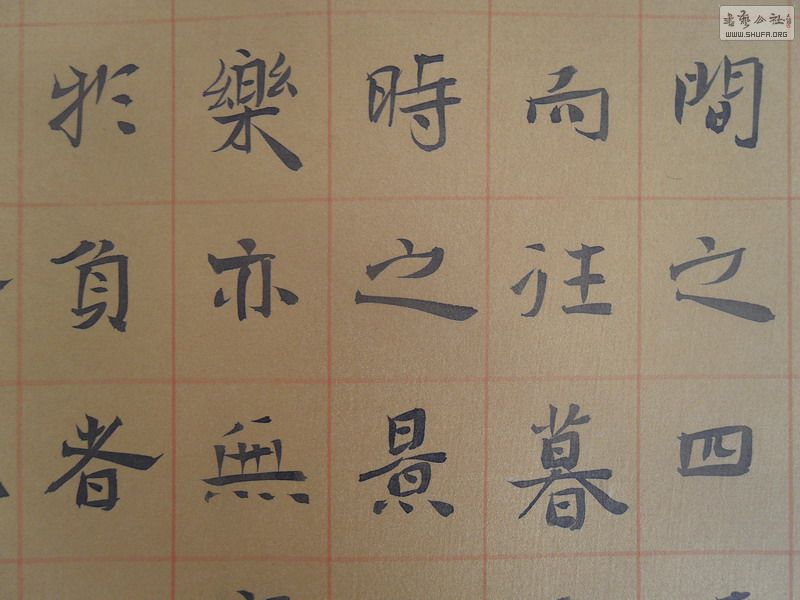 間之四
而往暮
時之景
樂亦無
於負者
書藝公社
WWW.SHUFA.ORG